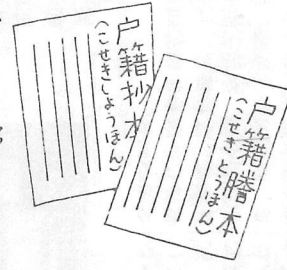 戸籍抄本
（こせきしようほん）
戸籍謄本
（こせきとうほん）